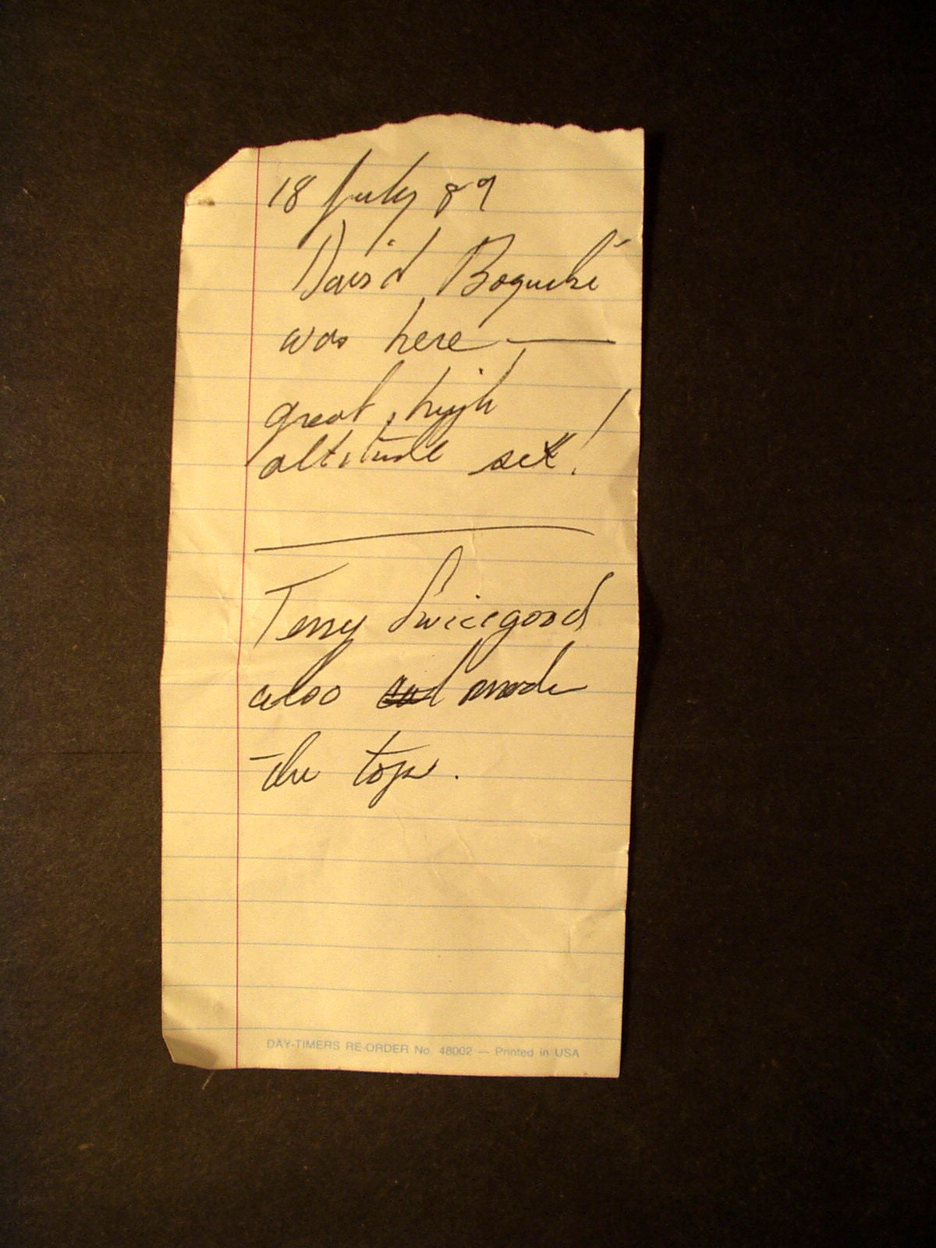 18 July 89
David Bogucki
was here —
great, high
altitude set!
Terry Swicegood
also made
the top.
DAY-TIMERS RE-ORDER No. 48002 — Printed in USA